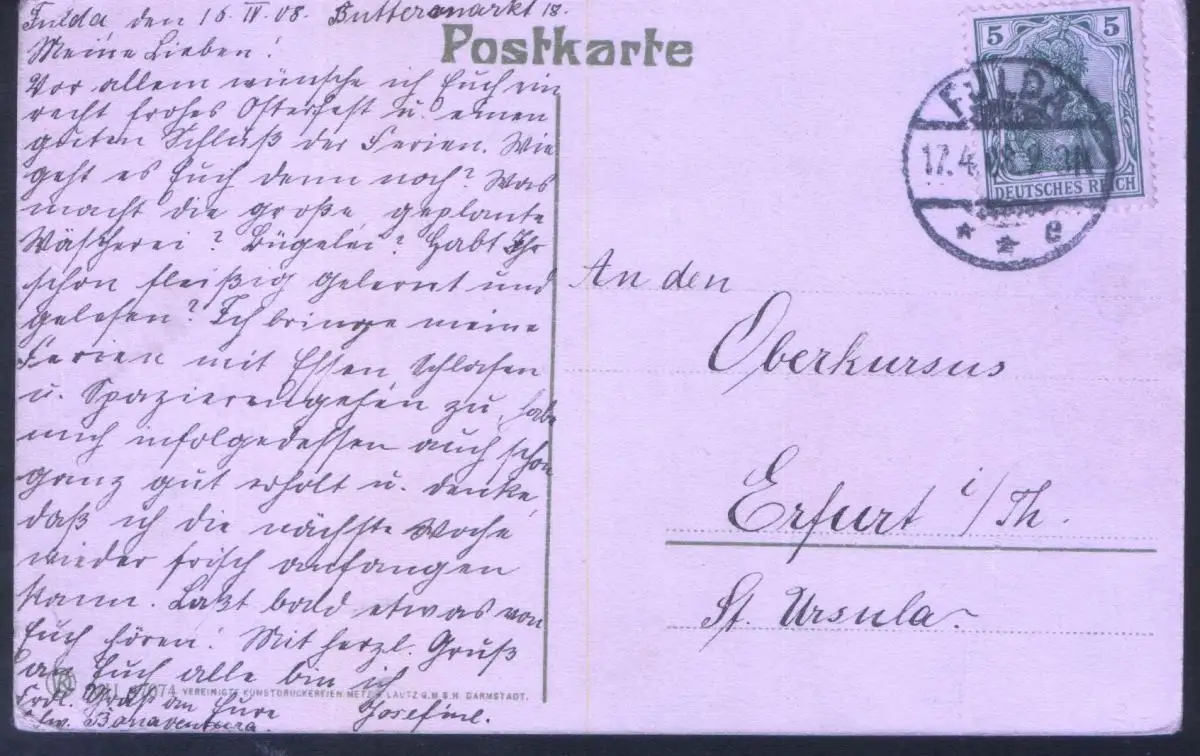 Fulda den 16. IV. 08. Buttermarkt 18.
Meine Lieben!
Vor allem wünsche ich Euch ein
recht frohes Osterfest u. einen
guten Schluß der Ferien. Wie
geht es Euch denn noch? Was
macht die große geplante
Wäscherei? Bügelei? Habt Ihr
schon fleißig gelernt und
gelesen? Ich bringe meine
Ferien mit Essen Schlafen
u. Spazierengehen zu, habe
mich infolgedessen auch schon
ganz gut erholt u. denke,
daß ich die nächste Woche
wieder frisch anfangen
kann. Laßt bald etwas von
Euch hören! Mit herzl. Gruß
an Euch alle bin ich
Frdl. Gruß an Eure Josefine.
Bonaventura.
Postkarte
5 5
DEUTSCHES REICH
FULDA
17.4. 2-3N
* * e
An den
Oberkursus
Erfurt i/Th.
St. Ursula.
VEREINIGTE KUNSTDRUCKEREIEN METZ & LAUTZ G.M.B.H. DARMSTADT.